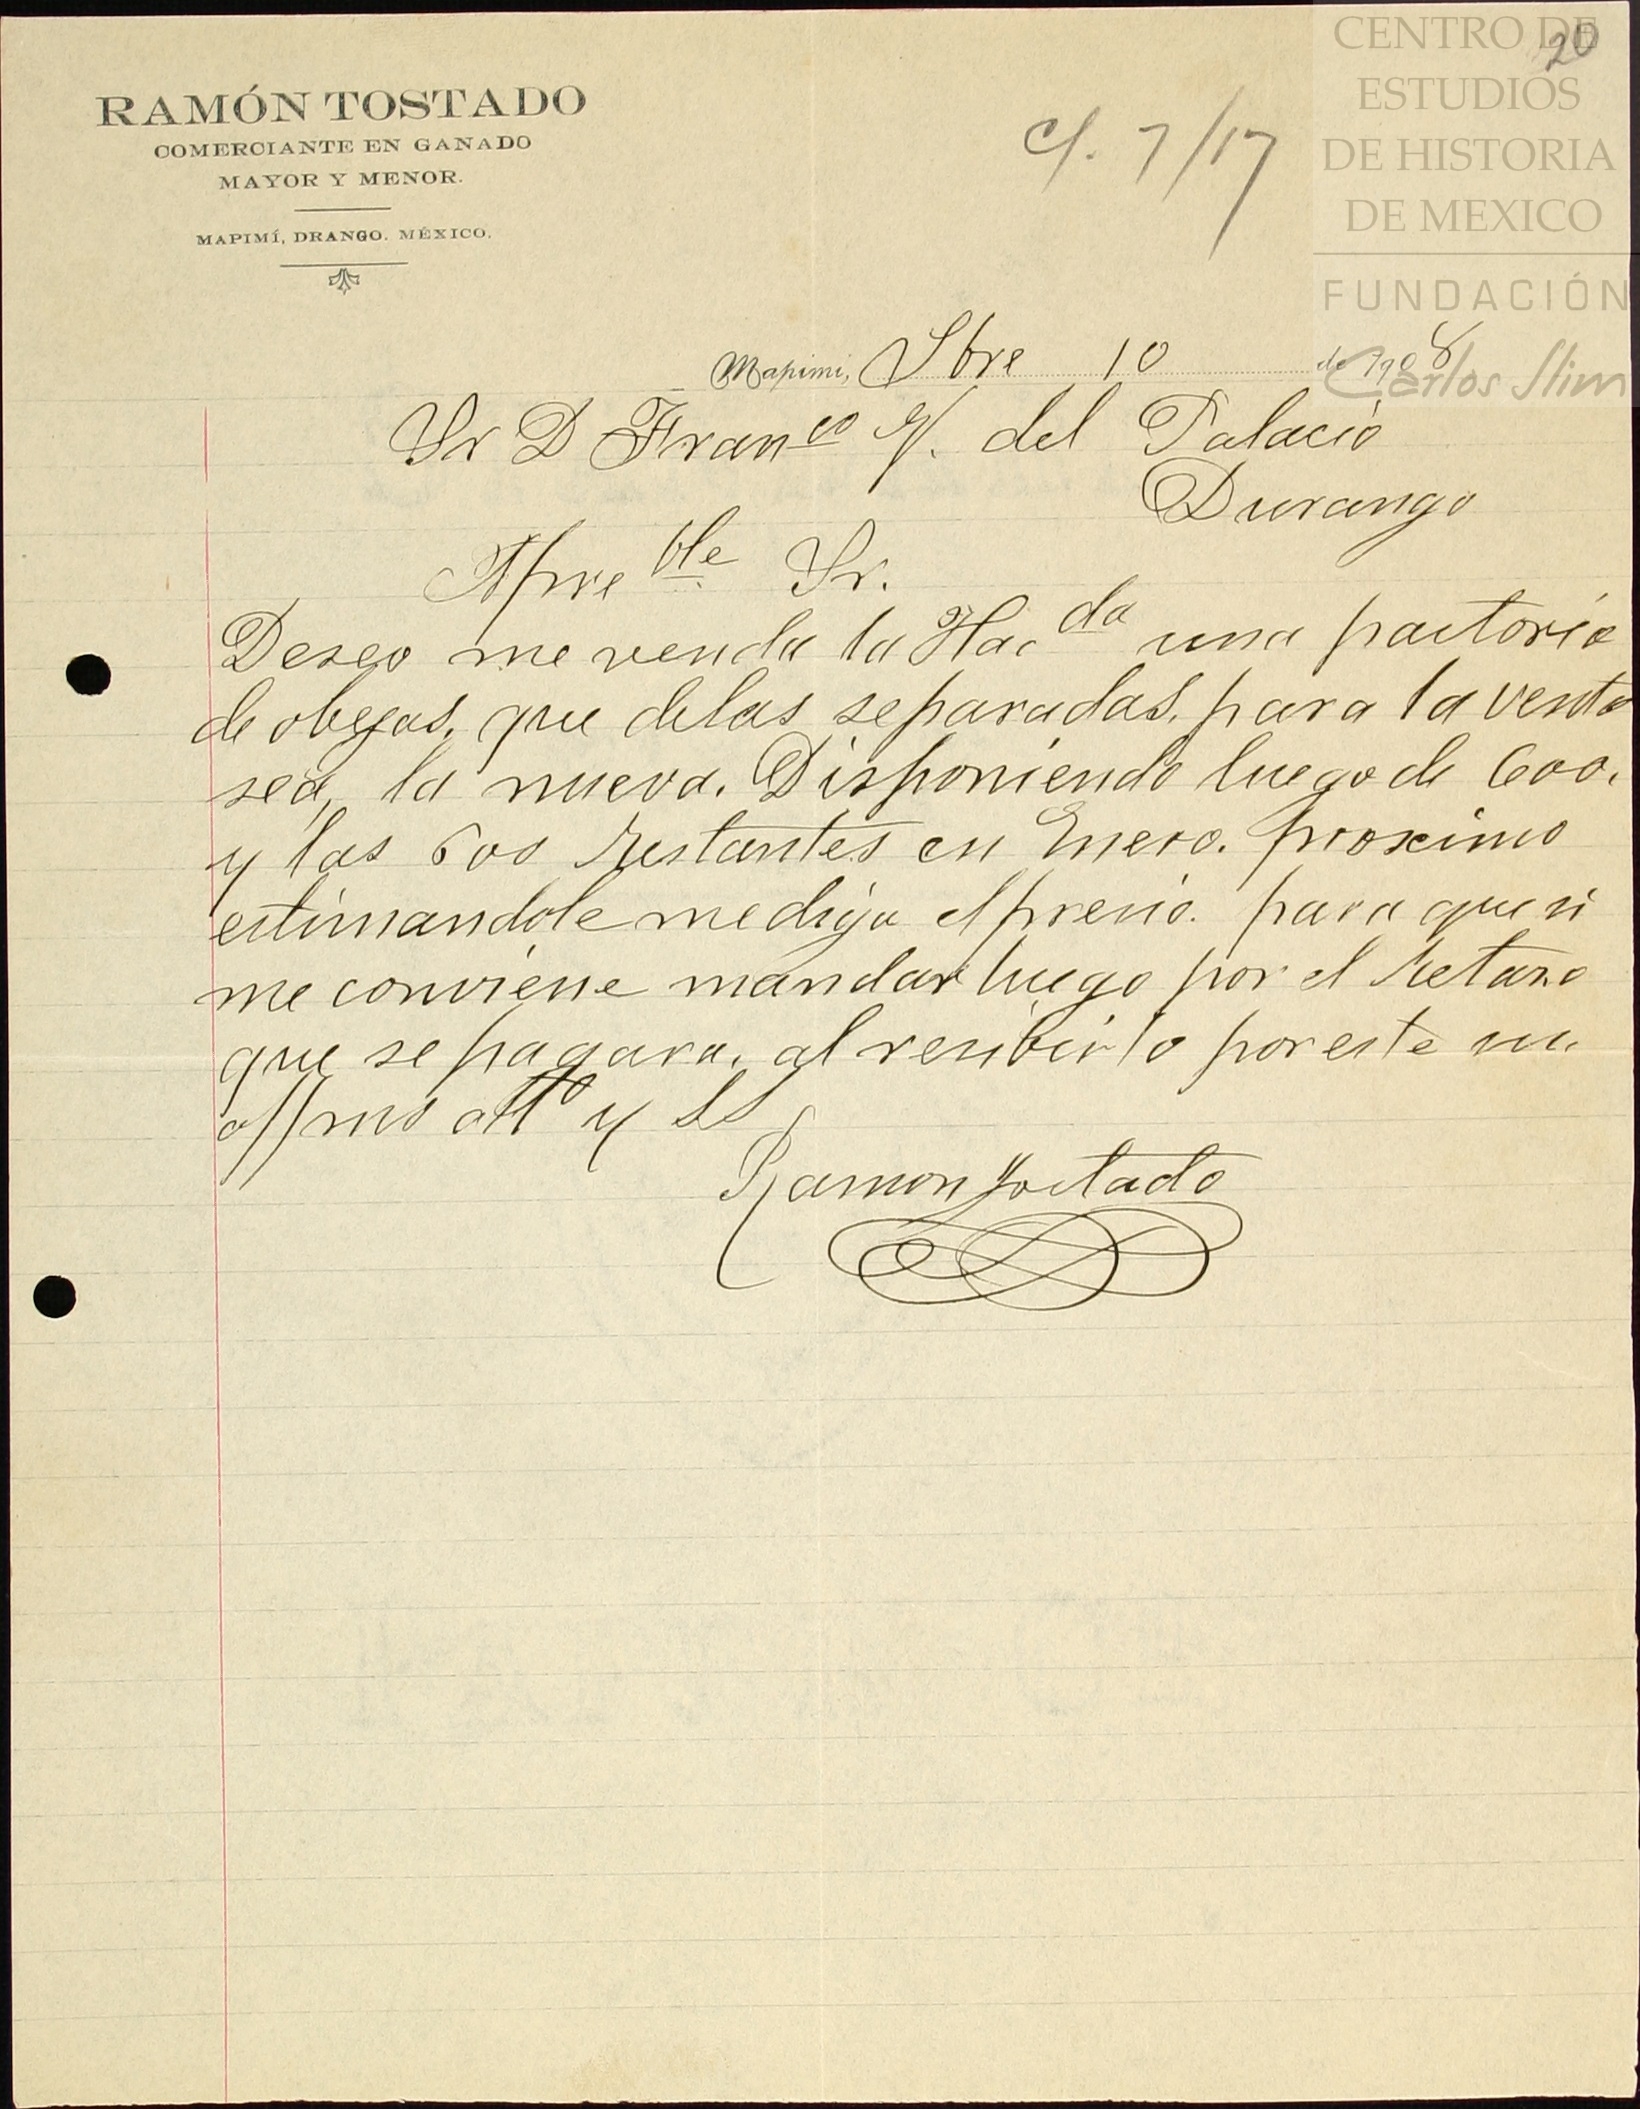 20
CENTRO DE
ESTUDIOS
DE HISTORIA
DE MEXICO
FUNDACIÓN
Carlos Slim
RAMÓN TOSTADO
COMERCIANTE EN GANADO
MAYOR Y MENOR.
MAPIMÍ, DRANGO. MÉXICO.
c/. 7/17
Mapimi, Sbre 10 de 1908
Sr D Franco G. del Palacio
Durango
Apreble Sr.
Deseo me venda la Hacda una pactoria
de obejas, que delas separadas, para la venta
sea, la nueva. Disponiendo luego de 600.
y las 600 restantes en Enero. proximo
estimandole mediga el presio. para que si
me conviene mandar luego por el retazo
que se pagara, al resibirlo por este su
affmo atto y SS
Ramon Tostado